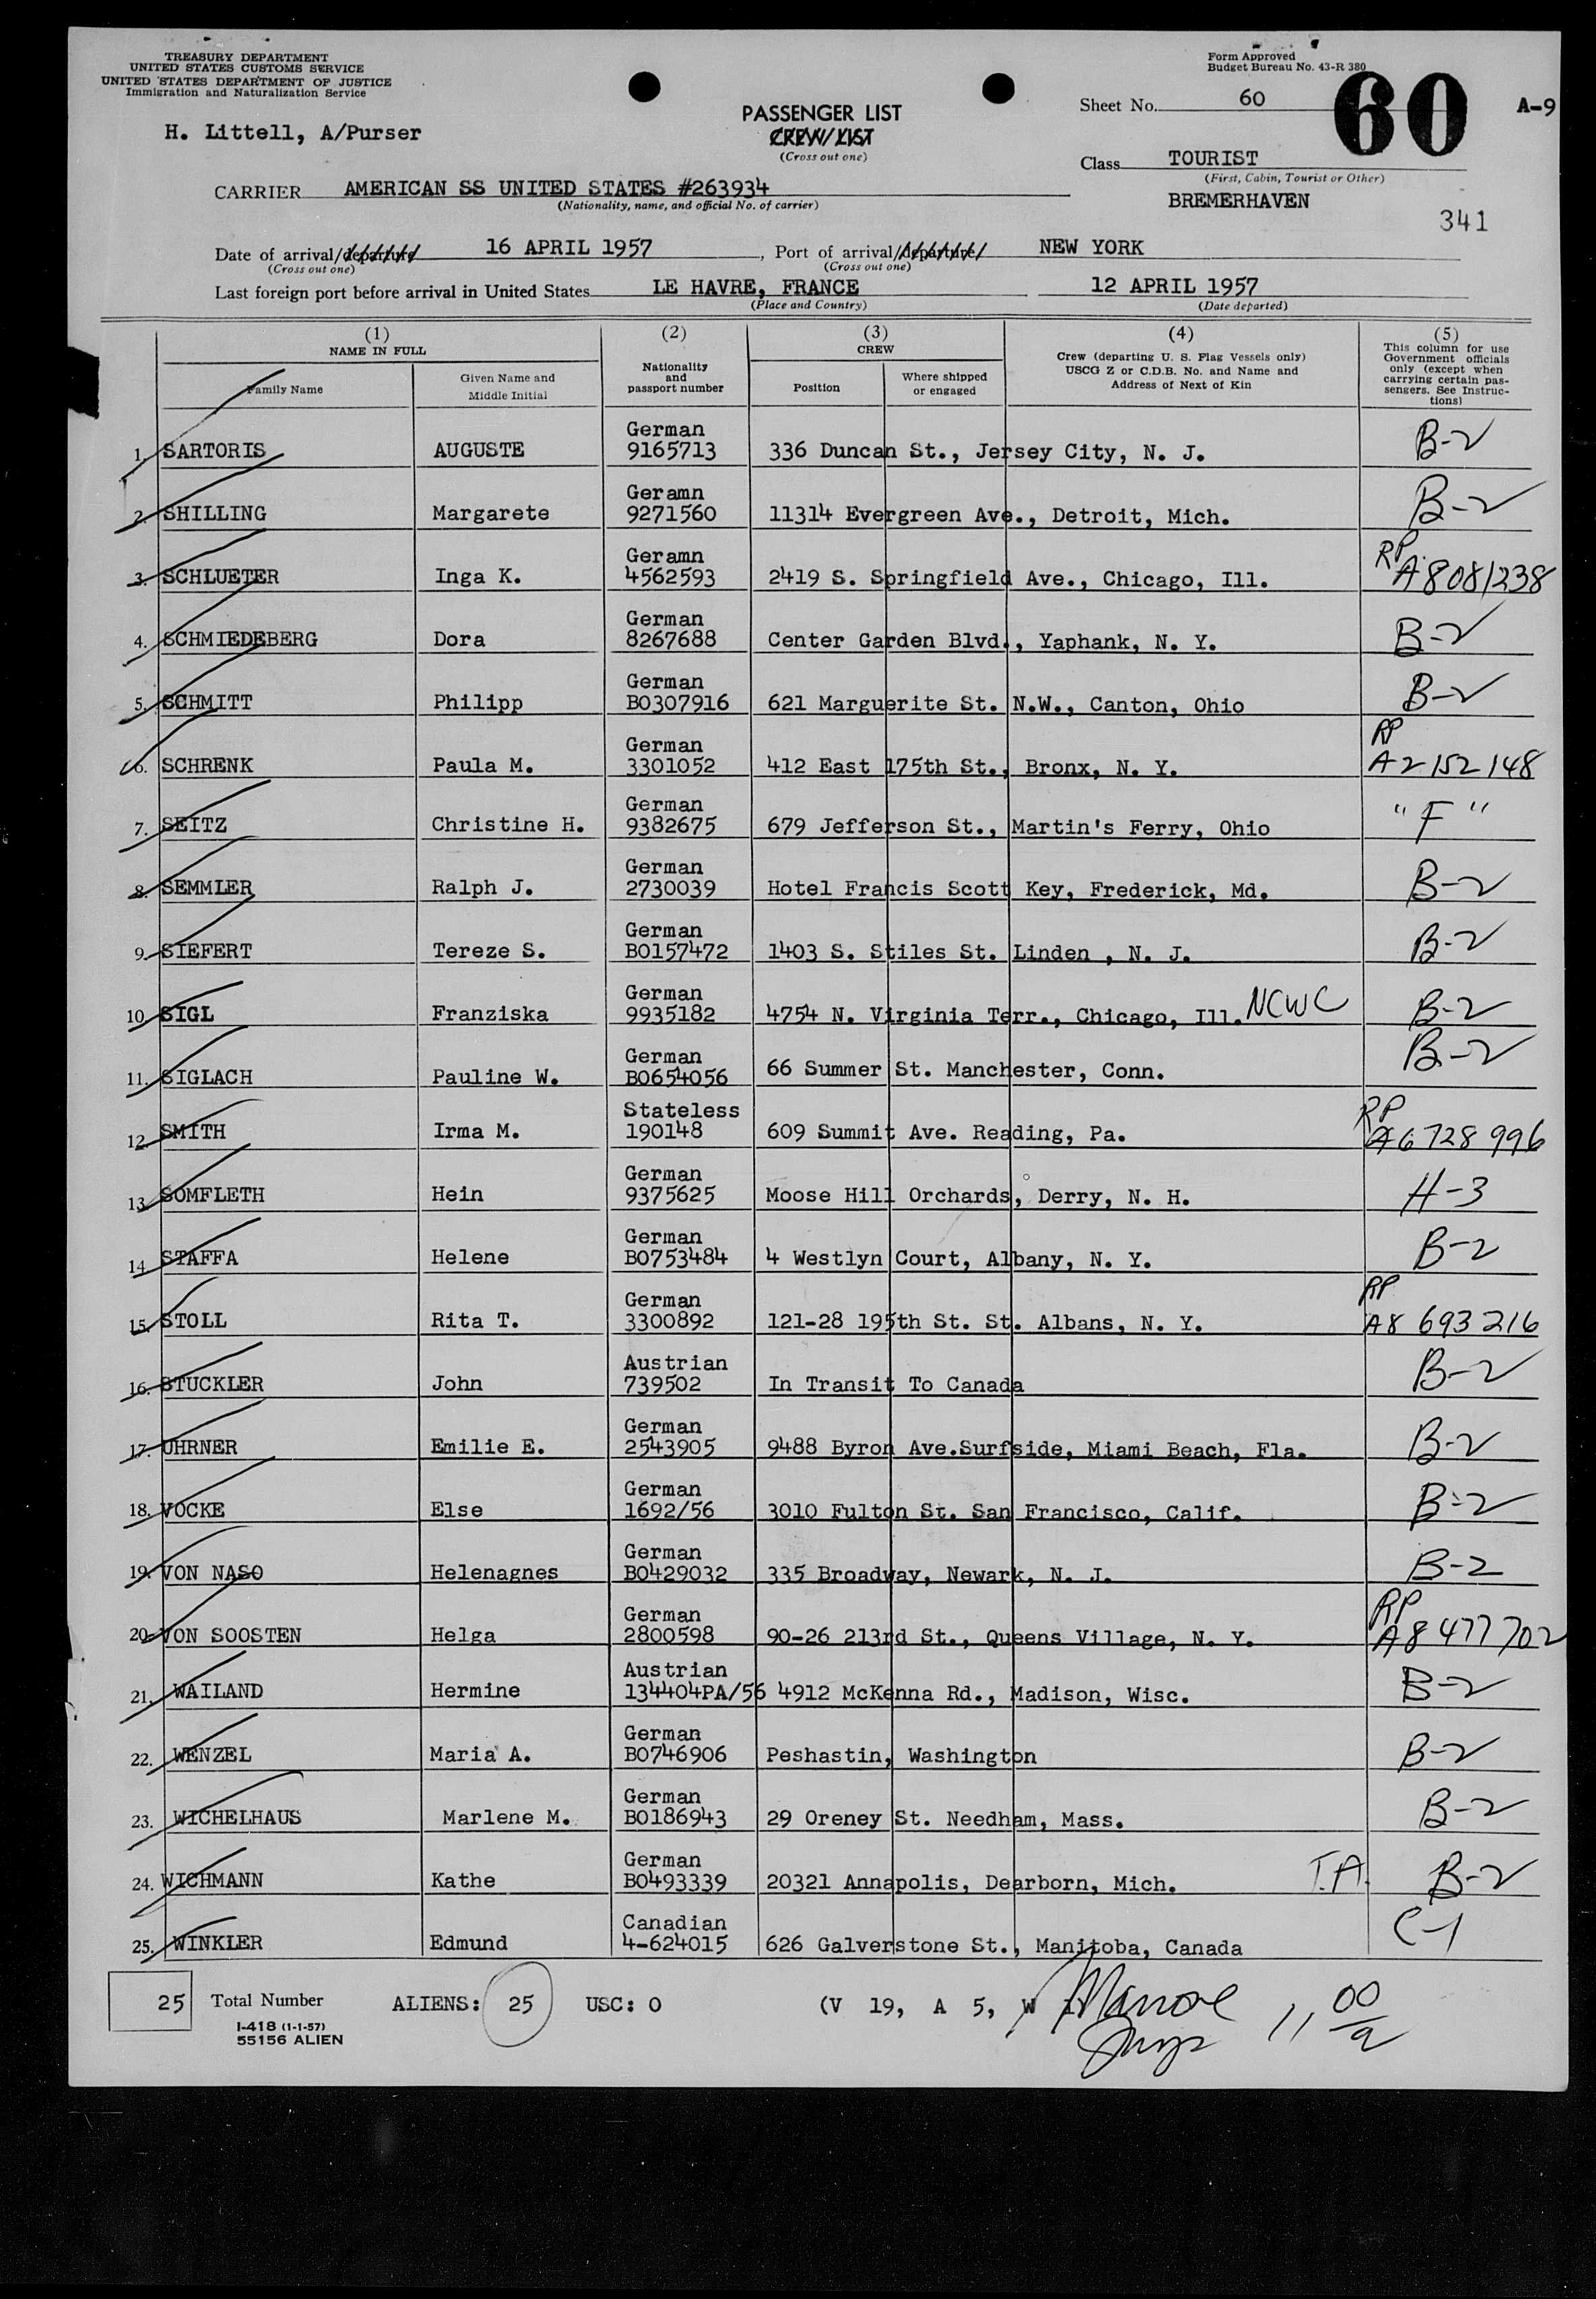 TREASURY DEPARTMENT
UNITED STATES CUSTOMS SERVICE
UNITED STATES DEPARTMENT OF JUSTICE
Immigration and Naturalization Service
H. Littell, A/Purser
PASSENGER LIST
CREW LIST
(Cross out one)
Form Approved
Budget Bureau No. 43-R 380
Sheet No. 60
60
A-9
Class TOURIST
(First, Cabin, Tourist or Other)
CARRIER AMERICAN SS UNITED STATES #263934
(Nationality, name, and official No. of carrier)
BREMERHAVEN
341
Date of arrival/departure 16 APRIL 1957, Port of arrival/departure NEW YORK
(Cross out one) (Cross out one)
Last foreign port before arrival in United States LE HAVRE, FRANCE 12 APRIL 1957
(Place and Country) (Date departed)
(1) (2) (3) (4) (5)
NAME IN FULL
Family Name
Given Name and Middle Initial
Nationality and passport number
CREW
Position
Where shipped or engaged
Crew (departing U. S. Flag Vessels only)
USCG Z or C.D.B. No. and Name and
Address of Next of Kin
This column for use
Government officials
only (except when
carrying certain pas-
sengers. See Instruc-
tions)
1. SARTORIS AUGUSTE German 9165713 336 Duncan St., Jersey City, N. J. B-2
2. SHILLING Margarete Geramn 9271560 11314 Evergreen Ave., Detroit, Mich. B-2
3. SCHLUETER Inga K. Geramn 4562593 2419 S. Springfield Ave., Chicago, Ill. RP A8081238
4. SCHMIEDEBERG Dora German 8267688 Center Garden Blvd., Yaphank, N. Y. B-2
5. SCHMITT Philipp German B0307916 621 Marguerite St. N.W., Canton, Ohio B-2
6. SCHRENK Paula M. German 3301052 412 East 175th St., Bronx, N. Y. RP A2152148
7. SEITZ Christine H. German 9382675 679 Jefferson St., Martin's Ferry, Ohio "F"
8. SEMMLER Ralph J. German 2730039 Hotel Francis Scott Key, Frederick, Md. B-2
9. SIEFERT Tereze S. German B0157472 1403 S. Stiles St. Linden , N. J. B-2
10. SIGL Franziska German 9935182 4754 N. Virginia Terr., Chicago, Ill. NCWC B-2
11. SIGLACH Pauline W. German B0654056 66 Summer St. Manchester, Conn. B-2
12. SMITH Irma M. Stateless 190148 609 Summit Ave. Reading, Pa. RP A6728996
13. SOMFLETH Hein German 9375625 Moose Hill Orchards, Derry, N. H. H-3
14. STAFFA Helene German B0753484 4 Westlyn Court, Albany, N. Y. B-2
15. STOLL Rita T. German 3300892 121-28 195th St. St. Albans, N. Y. RP A8 693 216
16. STUCKLER John Austrian 739502 In Transit To Canada B-2
17. UHRNER Emilie E. German 2543905 9488 Byron Ave.Surfside, Miami Beach, Fla. B-2
18. VOCKE Else German 1692/56 3010 Fulton St. San Francisco, Calif. B-2
19. VON NASO Helenagnes German B0429032 335 Broadway, Newark, N. J. B-2
20. VON SOOSTEN Helga German 2800598 90-26 213rd St., Queens Village, N. Y. RP A8 477 702
21. WAILAND Hermine Austrian 134404PA/56 4912 McKenna Rd., Madison, Wisc. B-2
22. WENZEL Maria A. German B0746906 Peshastin, Washington B-2
23. WICHELHAUS Marlene M. German B0186943 29 Oreney St. Needham, Mass. B-2
24. WICHMANN Kathe German B0493339 20321 Annapolis, Dearborn, Mich. T.A. B-2
25. WINKLER Edmund Canadian 4-624015 626 Galverstone St., Manitoba, Canada C-1
25 Total Number ALIENS: 25 USC: 0 (V 19, A 5, W
I-418 (1-1-57)
55156 ALIEN
11 00/a